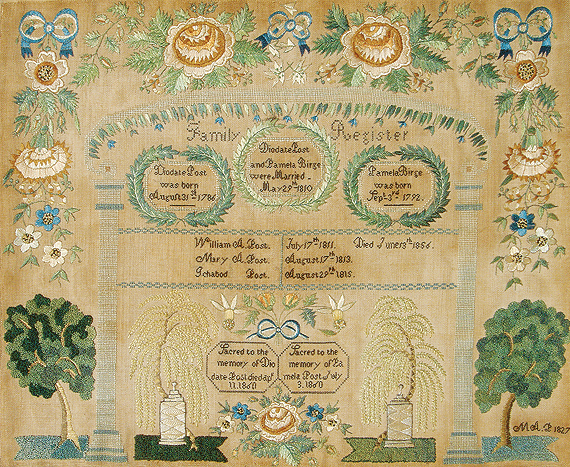 Family Register
Diodate Post
and Pamela Birge
were Married
May 29th 1810
Diodate Post
was born
August 31st 1786
Pamela Birge
was born
Sep 3rd 1792.
William A. Post. July 17th 1811. Died June 13th 1856.
Mary A. Post. August 17th 1813.
Ichabod Post. August 29th 1815.
Sacred to the
memory of Dio
date Post died
11.1860
Sacred to the
memory of Pa
mela Post July
3.1860
M A. P 1827